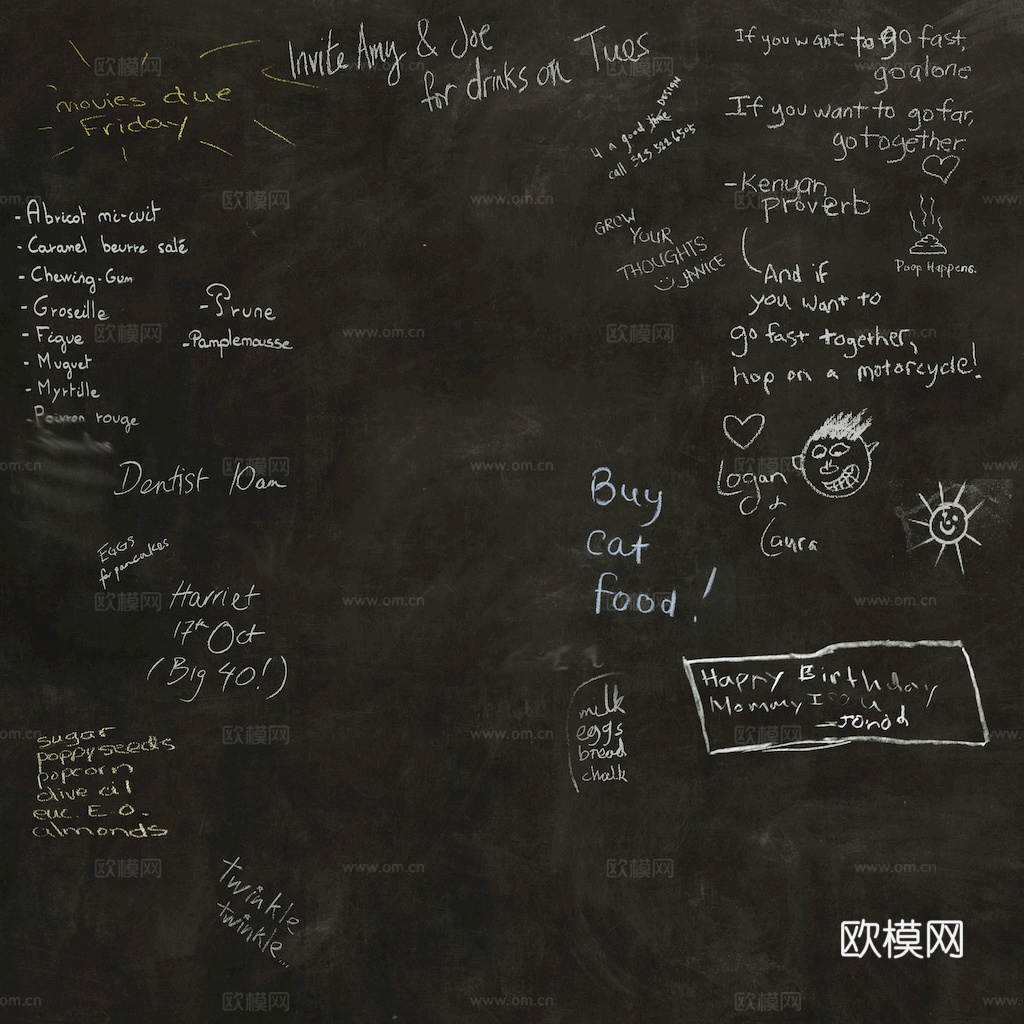 movies due
Friday
Invite Amy & Joe
for drinks on Tues
4 a good time DESIGN
call 515.522.6505
If you want to go fast,
go alone
If you want to go far,
go together.
-Kenyan
proverb
And if
you want to
go fast together,
hop on a motorcycle!
Poop Happens.
GROW
YOUR
THOUGHTS
JANICE
- Abricot mi-cuit
- Caramel beurre salé
- Chewing-Gum
- Groseille
- Figue
- Muguet
- Myrtille
- Poivron rouge
- Prune
- Pamplemousse
Dentist 10am
EGGS
for pancakes
Harriet
17th Oct
(Big 40!)
Buy
cat
food!
Logan
&
Laura
Happy Birthday
Mommy I ♡ u
milk
eggs
bread
chalk
sugar
poppyseeds
popcorn
olive oil
euc. E.O.
almonds
twinkle
twinkle...
欧模网
www.om.cn